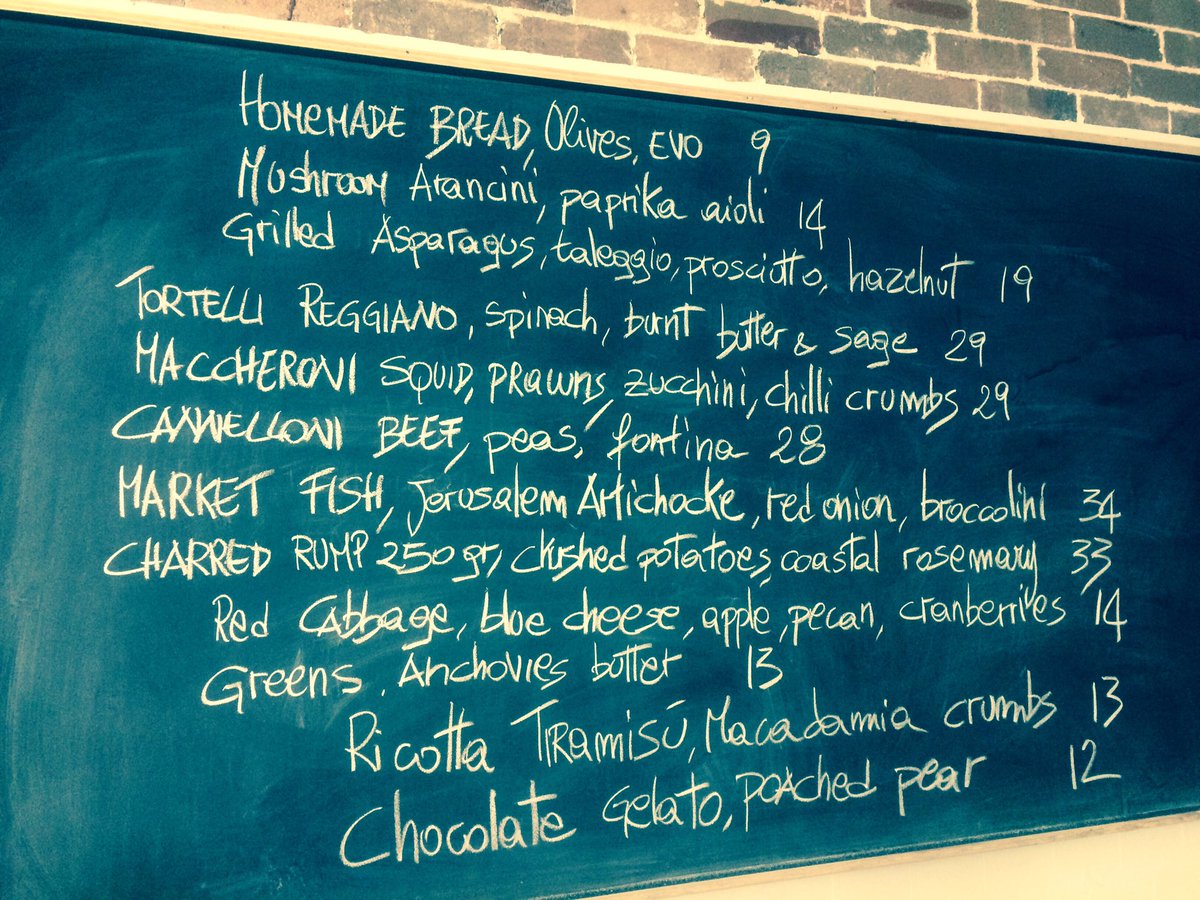 HOMEMADE BREAD, Olives, EVO 9
Mushroom Arancini, paprika aioli 14
Grilled Asparagus, taleggio, prosciutto, hazelnut 19
TORTELLI REGGIANO, spinach, burnt butter & sage 29
MACCHERONI SQUID, PRAWNS, zucchini, chilli crumbs 29
CANNELLONI BEEF, peas, fontina 28
MARKET FISH, Jerusalem Artichocke, red onion, broccolini 34
CHARRED RUMP 250gr, crushed potatoes, coastal rosemary 33
Red Cabbage, blue cheese, apple, pecan, cranberries 14
Greens, Anchovies butter 13
Ricotta Tiramisū, Macadamia crumbs 13
Chocolate Gelato, POACHED pear 12